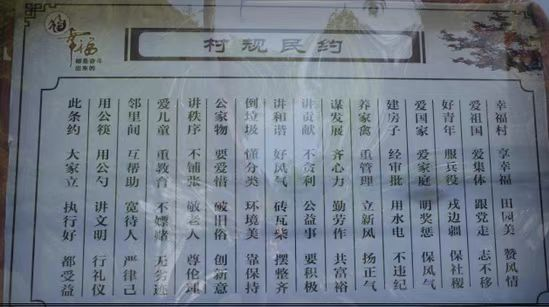 幸福
都是奋斗
出来的
村规民约
幸福村 享幸福 田园美 赞风情
爱祖国 爱集体 跟党走 志不移
好青年 服兵役 戍边疆 保社稷
爱国家 爱家庭 明奖惩 保风气
建房子 经审批 用水电 不违纪
养家禽 重管理 立新风 扬正气
谋发展 齐心力 勤劳作 共富裕
讲贡献 不贪利 公益事 要积极
讲和谐 好风气 砖瓦柴 摆整齐
倒垃圾 懂分类 环境美 靠保持
公家物 要爱惜 破旧俗 创新意
讲秩序 不铺张 敬老人 尊伦理
爱儿童 重教育 不嫖赌 无劣迹
邻里间 互帮助 宽待人 严律己
用公筷 用公勺 讲文明 行礼仪
此条约 大家立 执行好 都受益